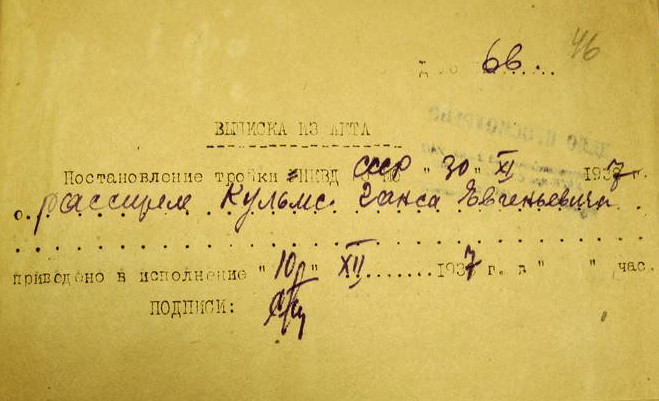 46
Дело 66......
ДЕЛО ПРОСМОТРЕНО
ВЫПИСКА ИЗ АКТА
Постановление тройки НКВД СССР "30" XI 1937 г.
о расстреле Кульмс Ганса Евгеньевича
приведено в исполнение "10" XII.......1937 г. в " " час.
ПОДПИСИ: